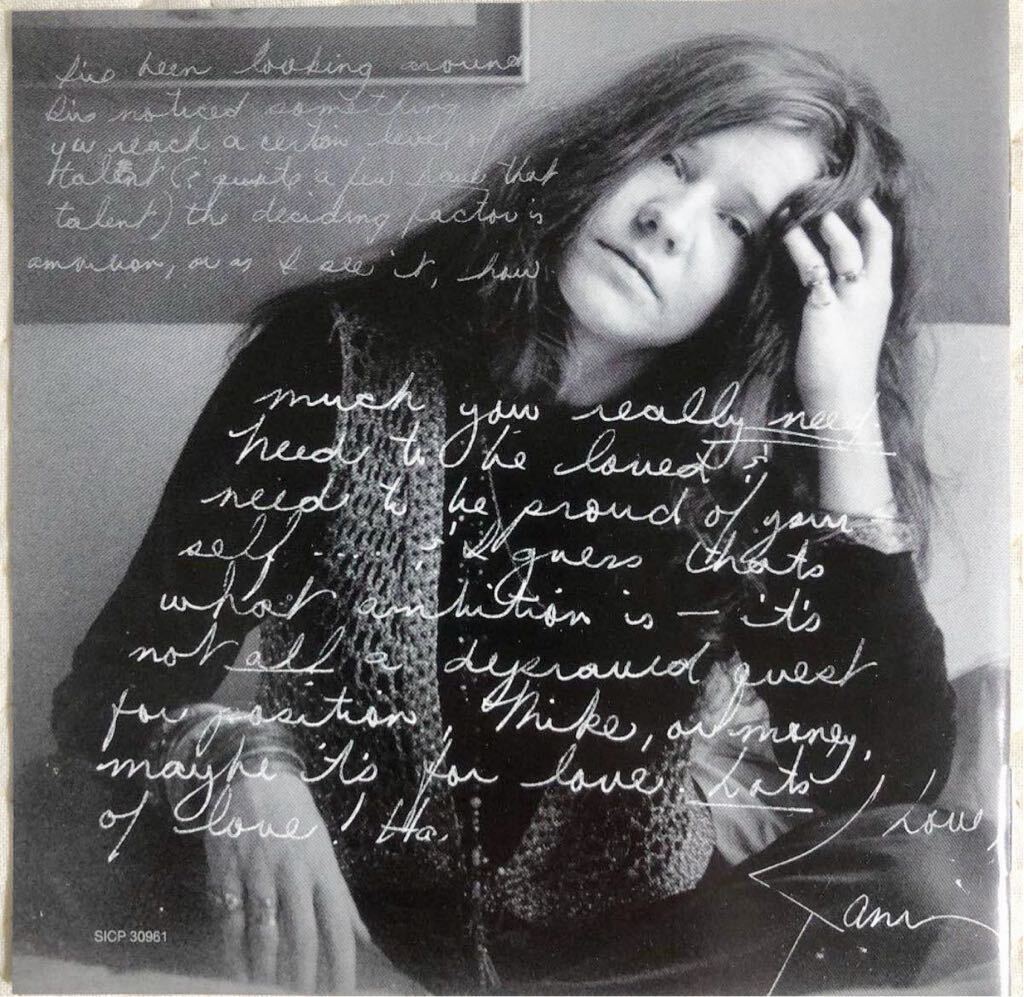 I've been looking around
I've noticed something. After
you reach a certain level of
talent (& quite a few have that
talent) the deciding factor is
ambition, or as I see it, how
much you really need
Need to be loved &
need to be proud of your-
self .... & I guess thats
what ambition is — it's
not all a depraved quest
for position, Mike, or money,
maybe it's for love. Lots
of love! Ha.
Love,
Janis
SICP 30961